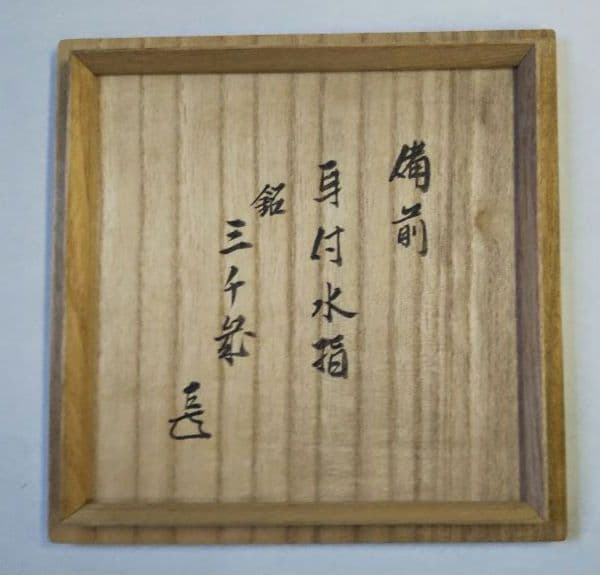 備前
耳付水指
銘
三千歳
長